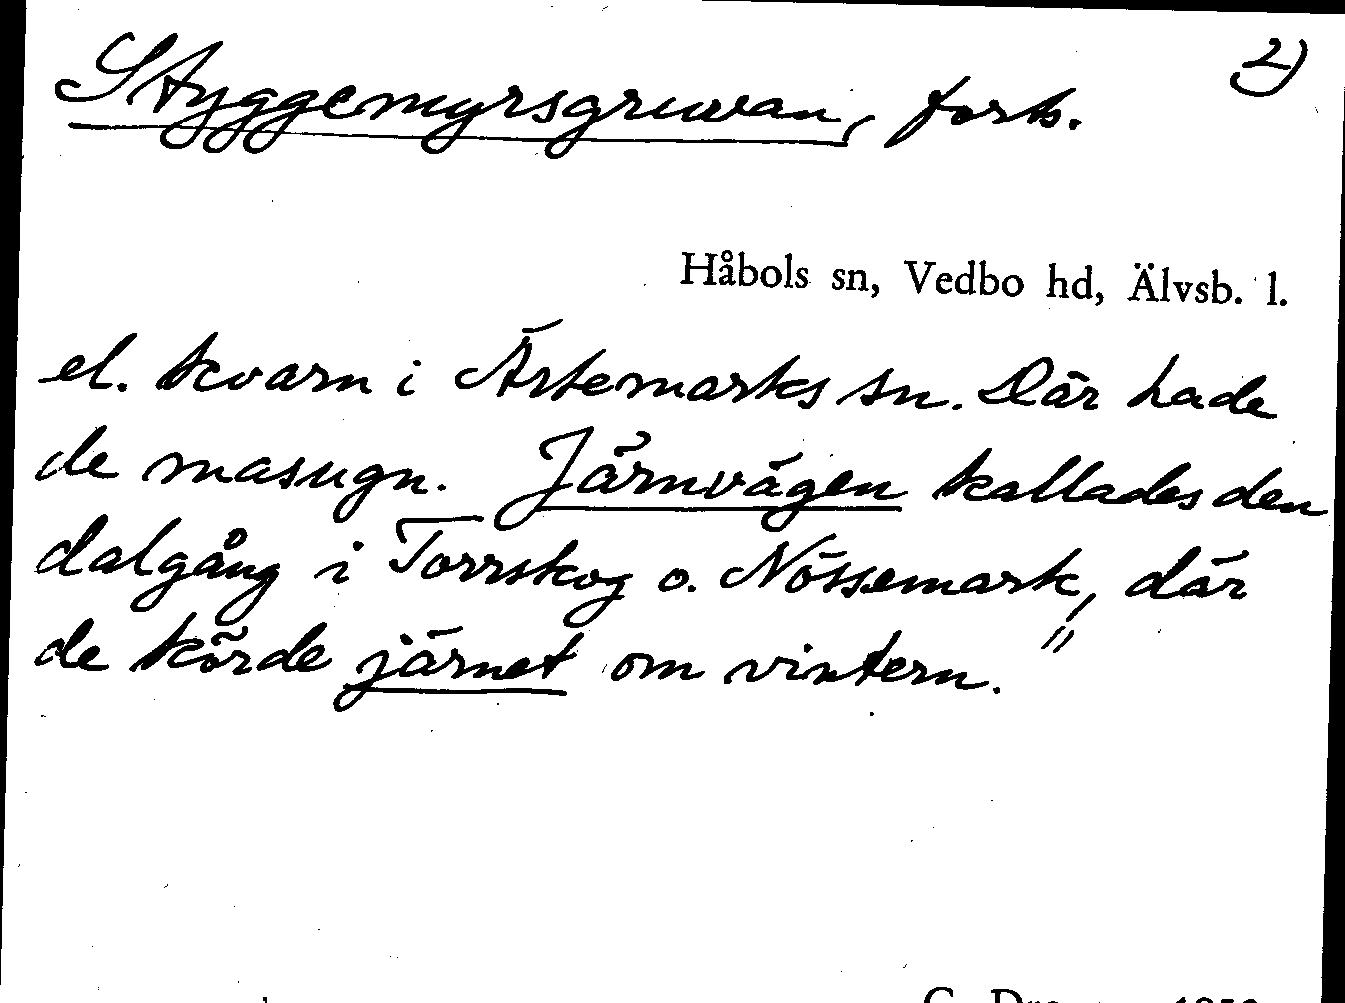 Styggemyrsgruvan, forts. 2)
Håbols sn, Vedbo hd, Älvsb. l.
el. kvarn i Ärtemarks sn. Där hade
de masugn. Järnvägen kallades den
dalgång i Torrskog o. Nössemark, där
de körde järnet om vintern."